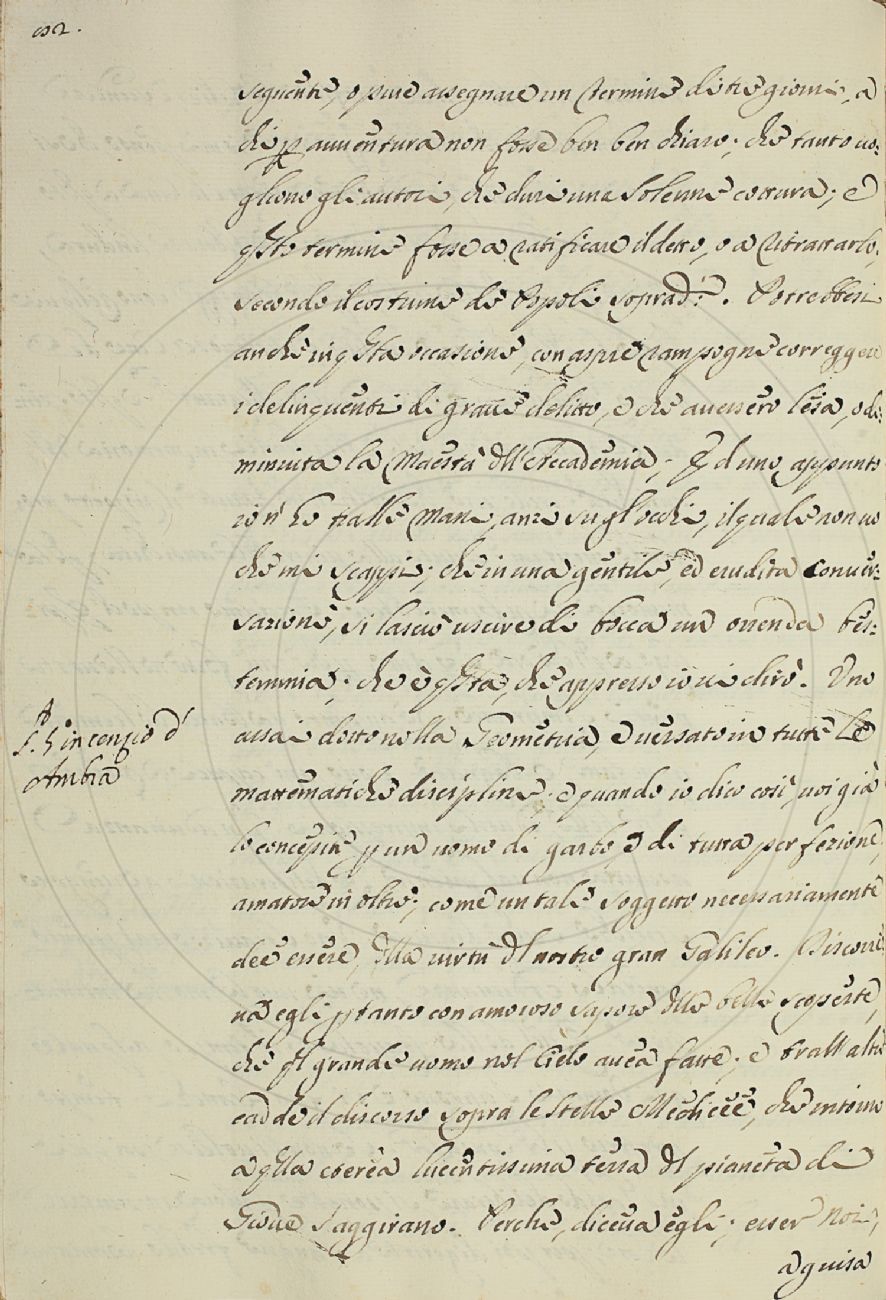 seguente, o pure assegnare un termine di tre giorni, a
chi p avventura non fosse ben ben chiaro; che tanto vo-
gliono gli autori, che duri una solenne cottura; e
qsto termine fosse a ratificare il detto, o a ritrattarlo,
secondo il costume de Popoli sopradi. Potrebbesi
anche in qsta occasione, con aspre rampogne correggere
i delinquenti di grave delitto, e che avessero lesa, o di-
minuita la Maestà dll'Accademia; e d'uno appunto
io n'ho tralle mani, anzi sugl'occhi, il quale non vo
che mi scappi; che in una gentile, ed erudita conver-
sazione, si lasciò uscire di bocca una orrenda bes-
temmia; che è qsta, che appresso io vi dirò. Uno
assai dotto nella Geometria, e versato in tutte le
mattematiche discipline; e quando io dico così, voi già
lo concepite p un uomo di garbo, e di tutta perfezione,
amatore in oltre; come un tale soggetto necessariamente
dee essere, dlla virtù dl nostro gran Galileo. Discorre
va egli p tanto con amoroso sapore dlle belle scoperte,
che ql grande uomo nel Cielo avea fatte; e trall'altre
cadde il discorso sopra le stelle Medicee, che intorno
a qlla eterea lucentissima terra dl pianeta di
Giove s'aggirano. Perchè, diceva egli; esser noi,
a guisa
S. Vincenzio d'
Ambra